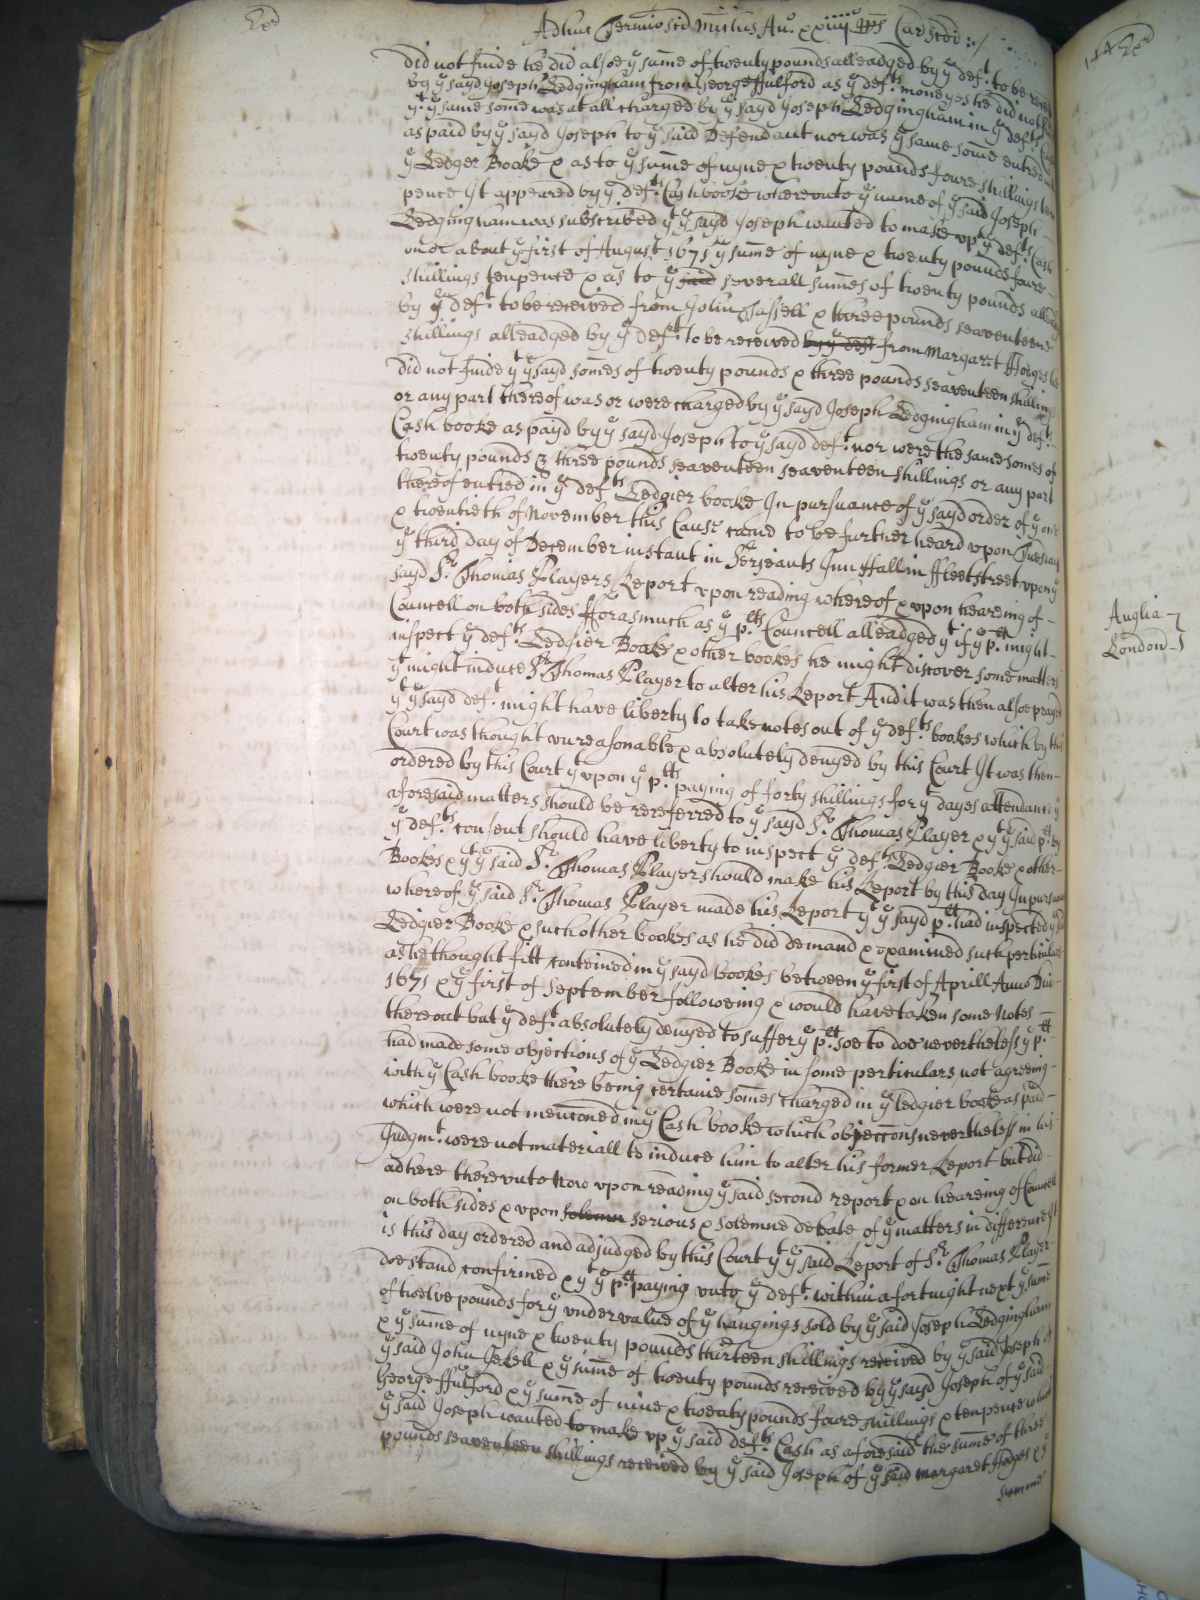 Adhuc Termio Scd Mich[is] An.o xxiiij Rs Car scdi
did not finde he did alsoe ye sume of twenty pounds alleadged by ye deft. to be
by ye sayd Joseph Ledgingham from George ffulford as ye defts. moneyes he did not
yt ye same some was at all charged by ye sayd Joseph Ledgingham in ye defts.
as paid by ye sayd Joseph to ye said Defendant nor was ye same some entred
ye Ledger Booke & as to ye sume of nyne & twenty pounds foure shillings ten
pence It appeared by ye defts Cash booke whereunto ye name of ye said Joseph
Ledgingham was subscribed yt ye sayd Joseph wanted to make vp ye defts Cash
on or about ye first of August 1671 ye sume of nyne & twenty pounds foure
shillings tenpence & as to ye said severall sumes of twenty pounds
by ye deft. to be received from John Jassell & three pounds seaventeene
shillings alleadged by ye deft to be received by ye deft from Margarit Hodges he
did not finde yt ye sayd somes of twenty pounds & three pounds seaventeen shillings
or any part thereof was or were charged by ye sayd Joseph Ledgingham in ye defts.
Cash booke as payd by ye sayd Joseph to ye sayd deft. nor were the same somes of
twenty pounds & three pounds seaventeen seaventeen shillings or any part
thereof entred in ye defts Ledgier booke In pursuance of ye sayd order of ye one
& twentieth of November this Cause came to be further heard vpon Tuesday
ye third day of December instant in Serjeants Inn Hall in ffleetstreet vpon ye
sayd Sr. Thomas Players Report vpon reading whereof & vpon hearing of
Councell on both sides fforasmuch as ye plts Councell alleadged yt if ye plt. might
inspect ye defts. Ledgier Booke & other bookes he might discover some matters
yt might induce Sr. Thomas Player to alter his Report And it was then alsoe prayed
yt ye sayd deft. might have liberty to take notes out of ye defts. bookes which by this
Court was thought vnreasonable & absolutely denyed by this Court It was then
ordered by this Court yt vpon ye plts paying of forty shillings for yt dayes attendance ye
aforesaid matters should be rereferred to ye sayd Sr. Thomas Player & yt ye said plt by
ye defts. consent should have liberty to inspect ye defts. Ledgier Booke & other
Bookes & yt ye said Sr. Thomas Player should make his Report by this day In pursuance
whereof ye said Sr. Thomas Player made his Report yt ye sayd plt. had inspected ye said
Ledgier Booke & such other bookes as he did demand & examined such perticulars
as he thought fitt conteined in ye sayd bookes between ye first of Aprill Anno Dni
1671 & ye first of September followeing & would have taken some Notes
thereout but ye deft. absolutely denyed to suffer ye plt. soe to doe nevertheless ye plt.
had made some objections of ye Ledgier Booke in some perticulars not agreeing
with ye Cash booke there being certaine somes charged in ye ledgier booke as paid
which were not menconed in ye Cash booke which objeccons nevertheless in his
Judgmt. were not materiall to induce him to alter his former Report but did
adhere therevnto Now vpon reading ye said second report & on hearing of Councell
on both sides & vpon solemn serious & solemne debate of ye matters in difference It
is this day ordered and adjudged by this Court yt ye said Report of Sr. Thomas Player
doe stand confirmed & yt ye plt. paying vnto ye deft. within a fortnight next ye sume
of twelve pounds for ye vndervalue of ye hangings sold by ye said Joseph Ledgingham
& ye sume of nyne & twenty pounds thirteen shillings received by ye said Joseph of
ye said John Jekell & ye sume of twenty pounds received by ye sayd Joseph of ye said
George ffulford & ye sume of nine & twenty pounds foure shillings & tenpence which
ye said Joseph wanted to make vp ye said defts. Cash as aforesaid the sume of three
pounds seaventeen shillings received by ye said Joseph of ye said Margaret Hodges & ye
summe
144
Anglia
London